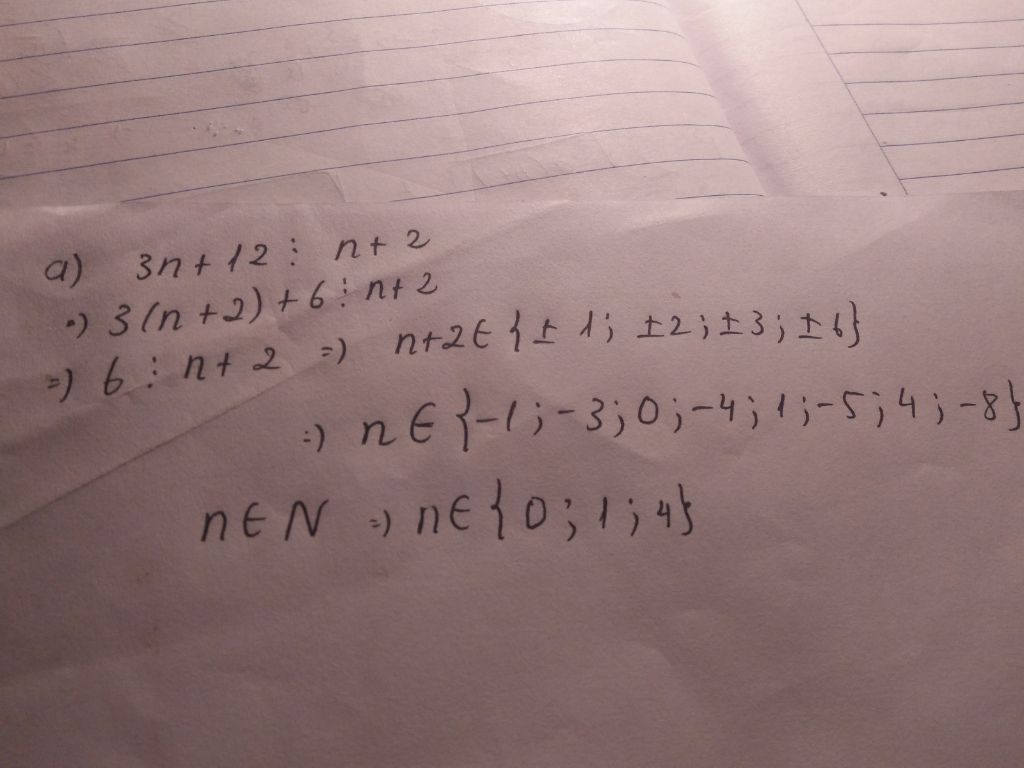 a) 3n + 12 ⋮ n + 2
=) 3(n + 2) + 6 ⋮ n + 2
=) 6 ⋮ n + 2 =) n+2 ∈ {± 1; ±2; ±3; ±6}
=) n ∈ {-1; -3; 0; -4; 1; -5; 4; -8}
n ∈ N =) n ∈ {0; 1; 4}